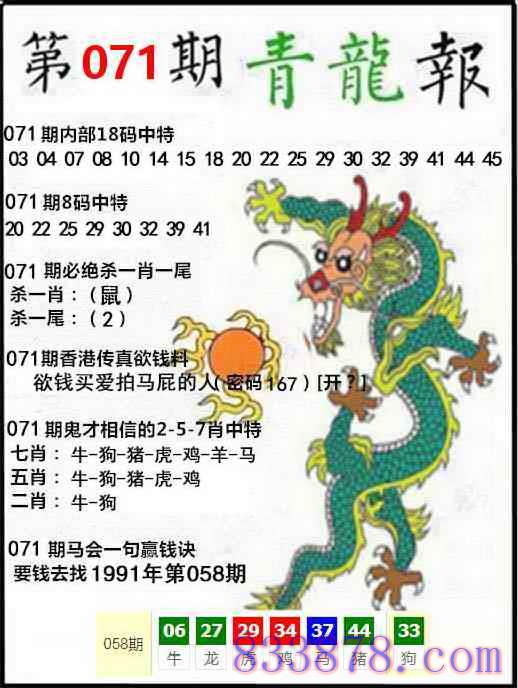 第071期青龍報
071期内部18码中特
03 04 07 08 10 14 15 18 20 22 25 29 30 32 39 41 44 45
071期8码中特
20 22 25 29 30 32 39 41
071 期必绝杀一肖一尾
杀一肖：（鼠）
杀一尾：（2）
071期香港传真欲钱料
欲钱买爱拍马屁的人（密码167）[开？]
071期鬼才相信的2-5-7肖中特
七肖：牛-狗-猪-虎-鸡-羊-马
五肖：牛-狗-猪-虎-鸡
二肖：牛-狗
071 期马会一句赢钱诀
要钱去找1991年第058期
058期 06 27 29 34 37 44 33
牛 龙 虎 鸡 马 猪 狗
833878.com